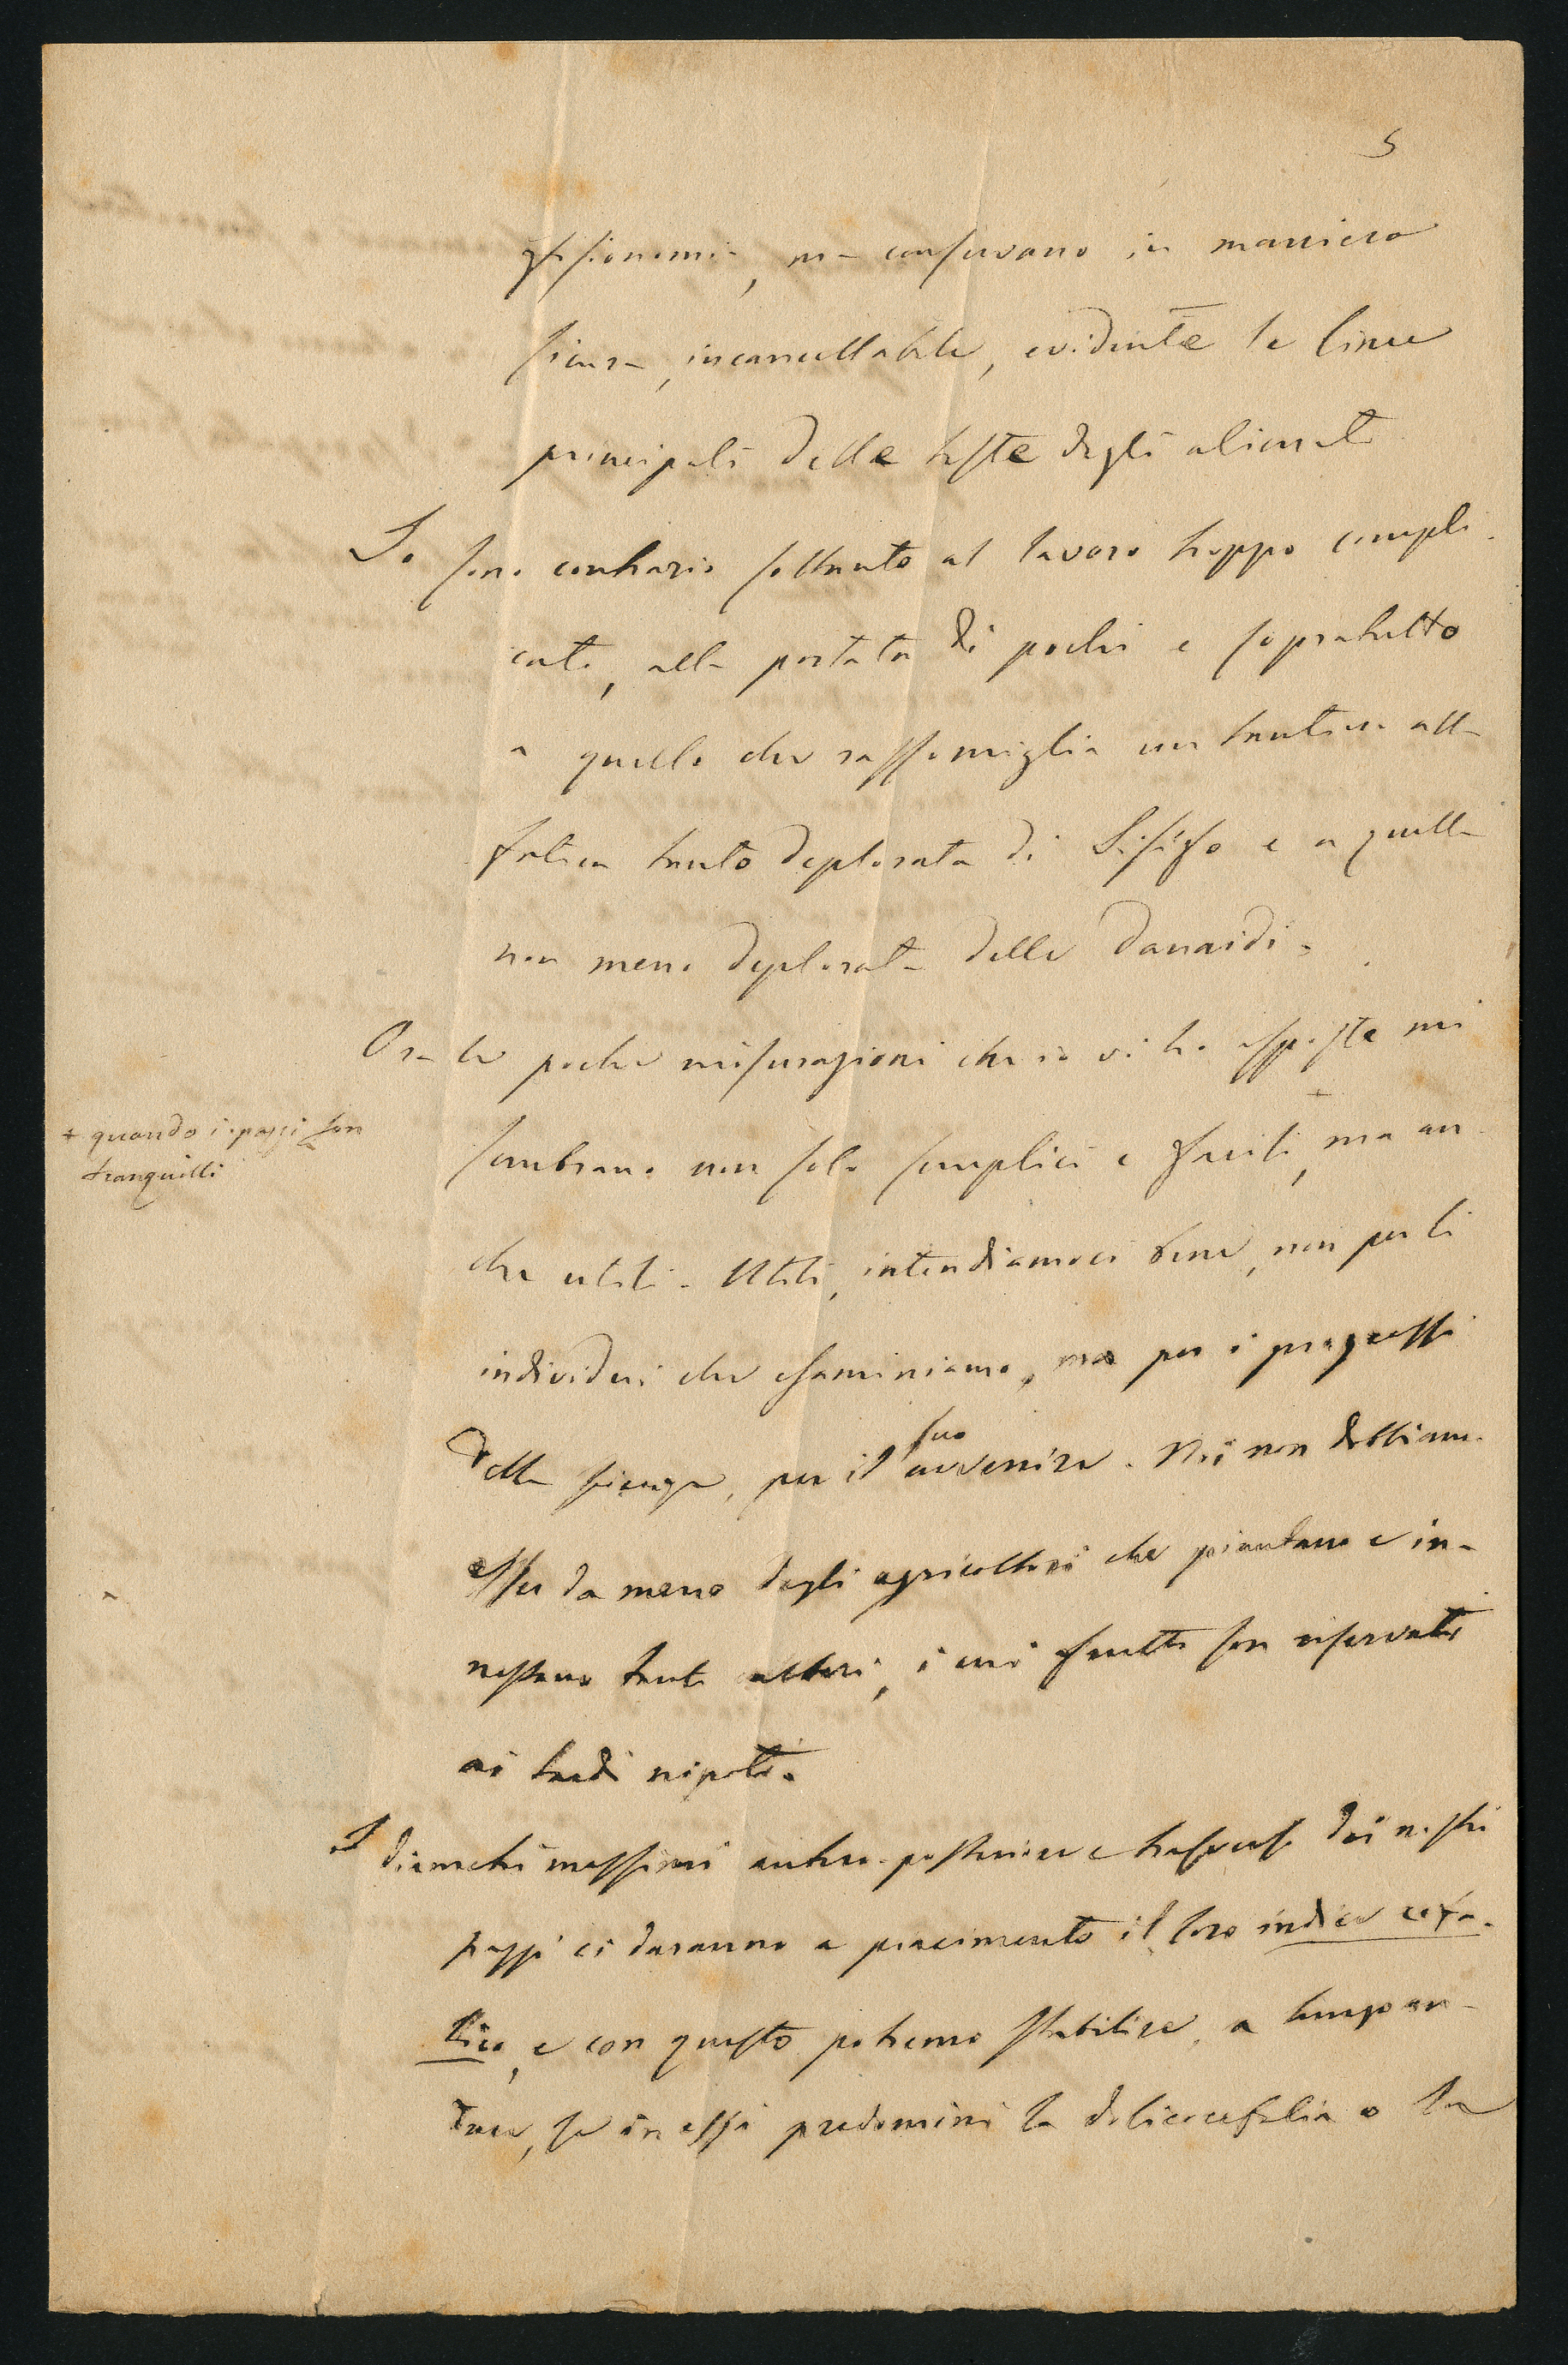 5
fisionomia, ma conservano in maniera
sicura, incancellabile, evidente le linee
principali delle teste degli alienati
Io sono contrario soltanto al lavoro troppo compli-
cato, alla portata di pochi e sopratutto
a quello che rassomiglia un tantino alla
fatica tanto deplorata di Sisifo e a quella
non meno deplorata delle Danaidi.
Ora le poche misurazioni che io vi ho esposte mi
sembrano non solo semplici e facili +, ma an-
+ quando i pazzi son
tranquilli
che utili. Utili, intendiamoci bene, non per li
individui che esaminiamo, ma per i progressi
della scienza, per il suo avvenire. Noi non dobbiamo
esser da meno degli agricoltori che piantano e in-
nestano tanti alberi, i cui frutti son riservati
ai tardi nipoti.
I diametri massimi antero-posteriore e trasverso dei nostri
pazzi ci daranno a piacimento il loro indice cefa-
lico, e con questo potremo stabilire, a lungo an-
dare, se in essi predomini la dolicocefalia o la